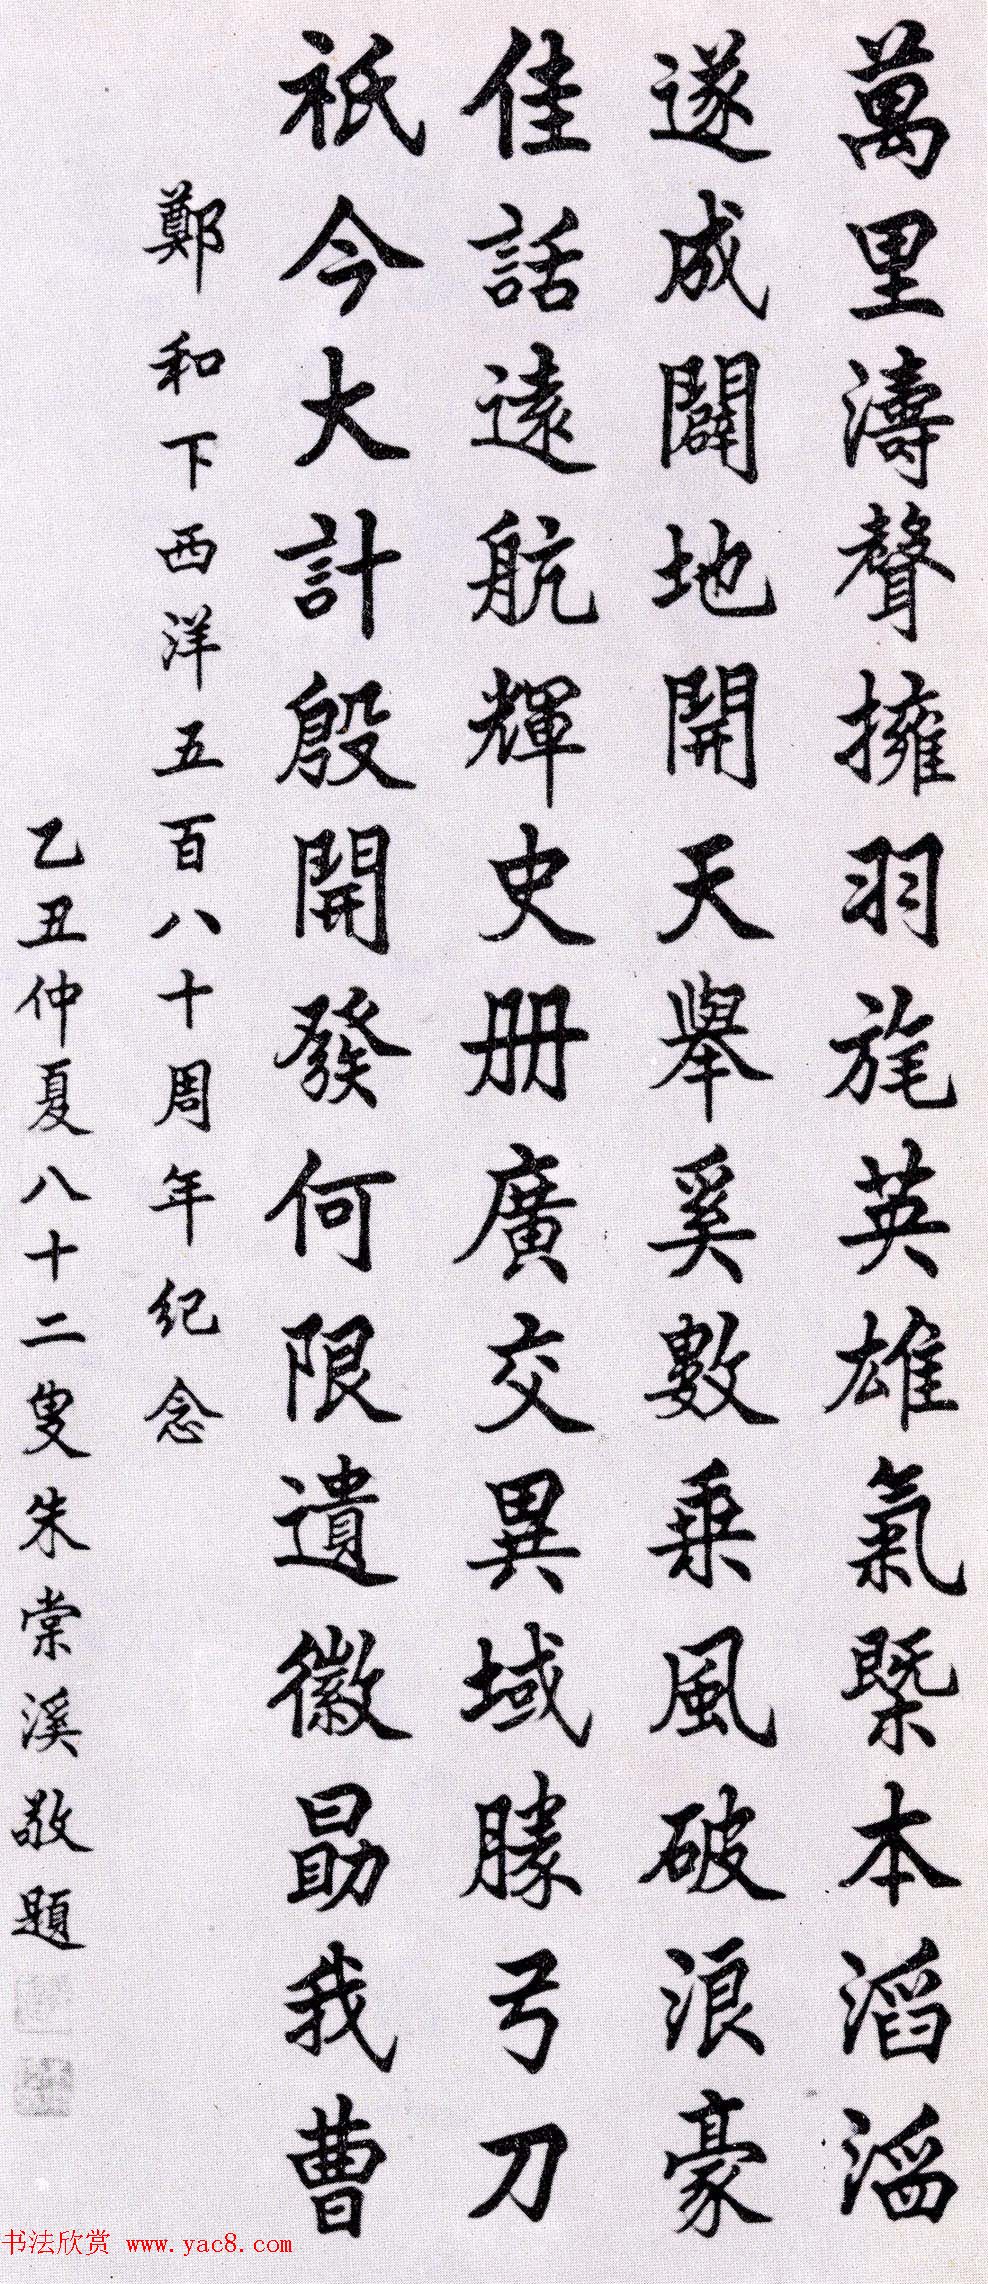 萬里濤聲擁羽旄英雄氣槩本滔滔
遂成闢地開天舉奚數乗風破浪豪
佳話遠航輝史册廣交異域勝弓刀
祇今大計殷開發何限遺徽勗我曹
鄭和下西洋五百八十周年紀念
乙丑仲夏八十二叟朱棠溪敬題
书法欣赏 www.yac8.com